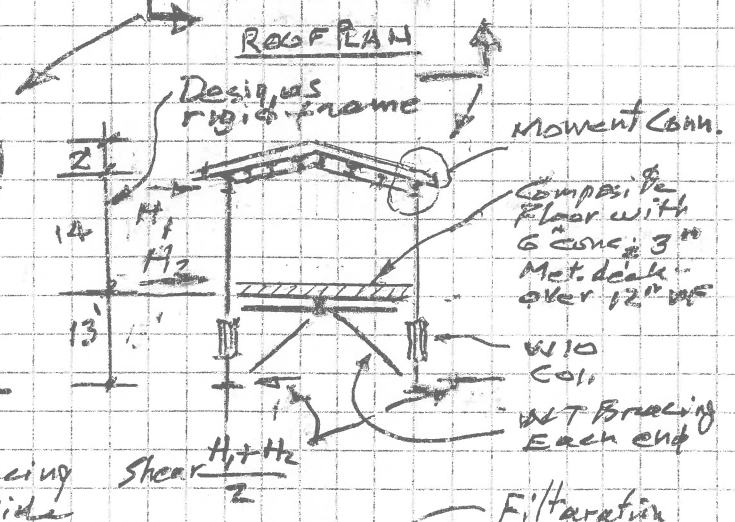 ROOF PLAN
Design as
rigid frame
Moment Conn.
2'
Composite
Floor with
6" conc; 3"
Met. deck
over 12" WF
H1
14
H2
13'
W10
Col.
WT Bracing
Each end
Shear H1+H2
2
cing
ide
Filtaration